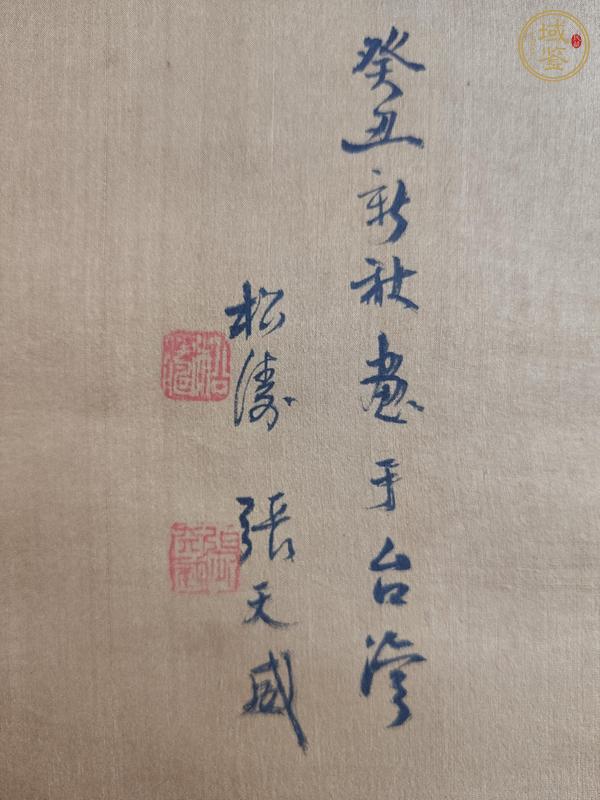 癸丑新秋画于台湾
松涛 張天威
松濤
域鉴